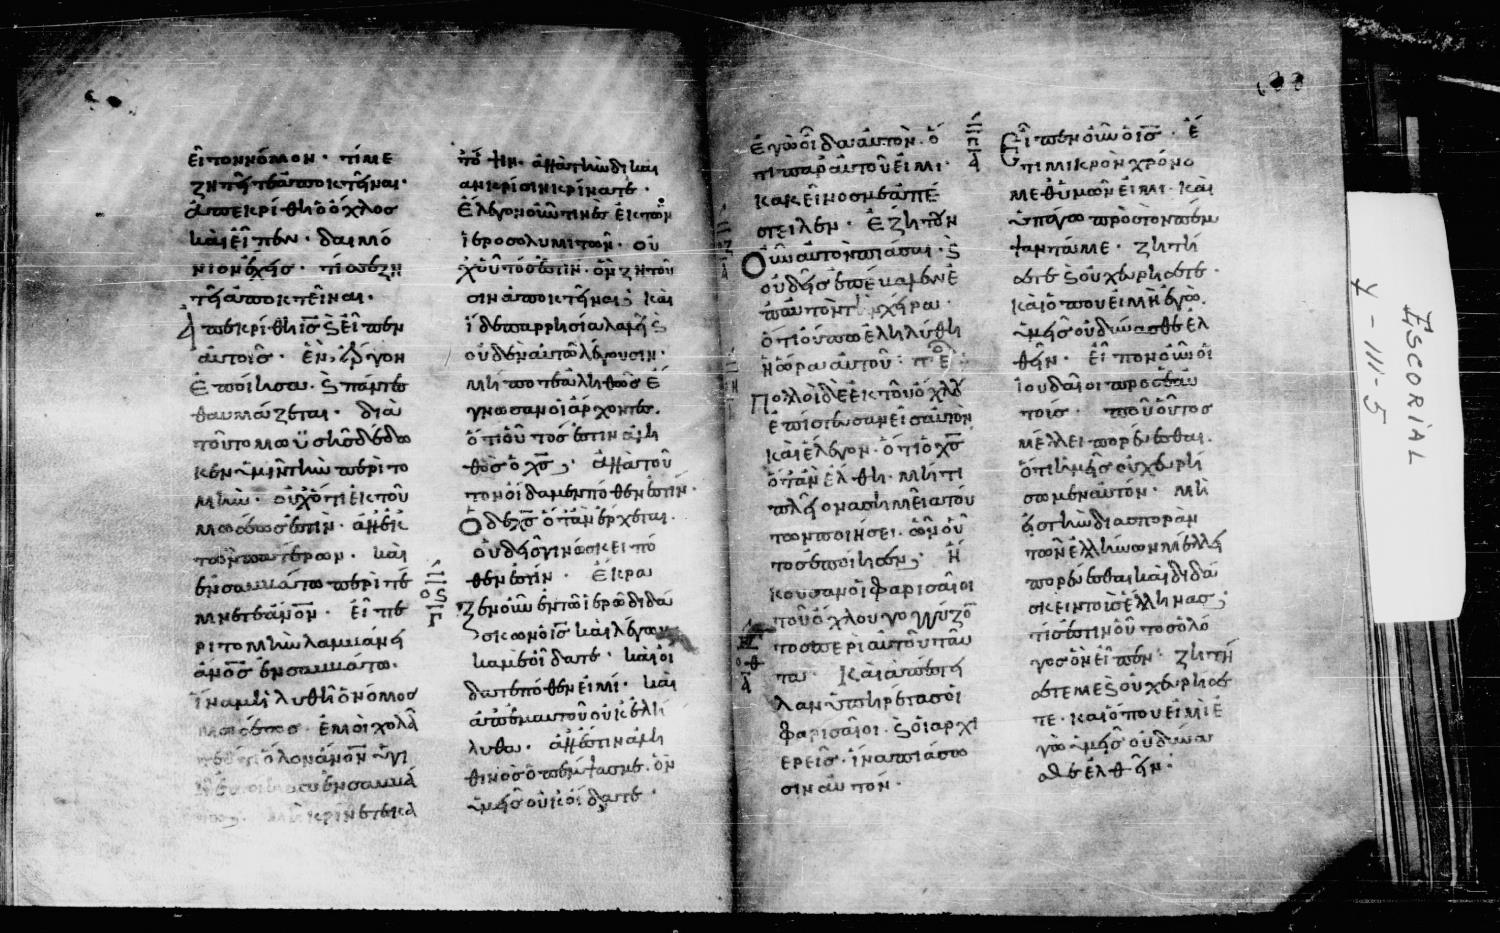 εῖ τὸν νόμον · τί με
ζητεῖτε ἀποκτεῖναι ·
ἀπεκρίθη ὁ ὄχλος
καὶ εἶπεν · δαιμό
νιον ἔχεις · τίς σε ζη
τεῖ ἀποκτεῖναι ·
Ἀπεκρίθη ις̅ ϗ εἶπεν
αὐτοῖς · ἓν ἔργον
ἐποίησα · ϗ πάντες
θαυμάζεται · διὰ
τοῦτο μωϋσῆς δέδω
κεν ὑμῖν τὴν περιτο
μὴν · οὐχ ὅτι ἐκ τοῦ
μωσέως ἐστὶν · ἀλλ' ἐκ
τῶν πατέρων · καὶ
ἐν σαββάτω περιτέ
μνετε ἄνο̅ν · εἰ πε
ριτομὴν λαμβάνει
ἄνο̅ς ἐν σαββάτω ·
ἵνα μὴ λυθῆ ὁ νόμος
μωσέως · ἐμοὶ χολᾶ
τε ὅτι ὅλον ἄνο̅ν ὑγι
ἐν σαββά
μὴ κρίνετε κα
τ' ὄψιν · ἀλλὰ τὴν δικαι
αν κρίσιν κρίνατε ·
Ἔλεγον οὖν τινὲς ἐκ τῶν
ἱεροσολυμιτῶν · οὐ
χ' οὗτός ἐστιν · ὃν ζητοῦ
σιν ἀποκτεῖναι ; καὶ
ἴδε παρρησία λαλεῖ ϗ
οὐδὲν αὐτῶ λέγουσιν ·
μή ποτε ἀληθῶς ἔ
γνωσαν οἱ ἄρχοντες ·
ὅτι οὗτός ἐστιν ἀλη
θῶς ὁ χς̅ ; ἀλλὰ τοῦ
τον οἴδαμεν πόθεν ἐστίν ·
Ὁ δὲ χς̅ ὅταν ἔρχεται ·
οὐδεὶς γινώσκει πό
θεν ἐστίν · Ἔκρα
ος̅ γ̅
ζεν οὖν ἐν τῶ ἱερῶ διδά
σκων ὁ ις̅ καὶ λέγων
καμὲ οἴδατε · καὶ οἴ
δατε πόθεν εἰμί · καὶ
ἀπ' ἐμαυτοῦ οὐκ ἐλή
λυθα · ἀλλ' ἔστιν ἀλη
θινὸς ὁ πέμψας με · ὃν
ὑμεῖς οὐκ οἴδατε ·
Ἐγὼ οἶδα αὐτὸν · ὅ
τι παρ' αὐτοῦ εἰμι ·
κακεῖνος με ἀπέ
στειλεν · Ἐζήτουν
Οὖν αὐτὸν πιάσαι · ϗ
οὐδεὶς ἐπέβαλεν ἐ
π' αὐτὸν τὴν χεῖρα ·
ὅτι οὔπω ἐληλύθη
ἡ ὥρα αὐτοῦ ·
Πολλοὶ δὲ ἐκ τοῦ ὄχλου
ἐπίστευσαν εἰς αὐτὸν
καὶ ἔλεγον · ὅτι ὁ χς̅
ὅταν ἔλθη · μήτι
πλείονα σημεῖα τού
των ποιήσει · ὧν οὗ
τος ἐποίησεν ; Ἤ
κουσαν οἱ φαρισαῖοι
τοῦ ὄχλου γογγύζον
τος περὶ αὐτοῦ ταῦ
τα · Καὶ ἀπέστει
λαν ὑπηρέτας οἱ
φαρισαῖοι · ϗ οἱ ἀρχι
ερεῖς · ἵνα πιάσω
σιν αὐτόν ·
π̅ α̅
Εἶπεν οὖν ὁ ις̅ · ἔ
τι μικρὸν χρόνο
μεθ' ὑμῶν εἰμι · καὶ
ὑπάγω πρὸς τὸν πέμ
ψαντά με · ζητή
σετε ϗ οὐχ εὑρήσετε ·
καὶ ὅπου εἰμὶ ἐγὼ ·
ὑμεῖς οὐ δύνασθε ἐλ
θεῖν · εἶπον οὖν οἱ
ἰουδαῖοι πρὸς ἑαυ
τούς · ποῦ οὗτος
μέλλει πορεύεσθαι ·
ὅτι ἡμεῖς οὐχ εὑρή
σωμεν αὐτόν · μὴ
εἰς τὴν διασπορὰν
τῶν ἑλλήνων μέλλει
πορεύεσθαι καὶ διδά
σκειν τοὺς ἕλληνας ;
τίς ἐστιν οὗτος ὁ λό
γος ὃν εἶπεν · ζητή
σετέ με ϗ οὐχ εὑρήσε
τε · καὶ ὅπου εἰμὶ ἐ
γὼ ὑμεῖς οὐ δύνα
σθε ἐλθεῖν ·
ESCORIAL
Y - III - 5